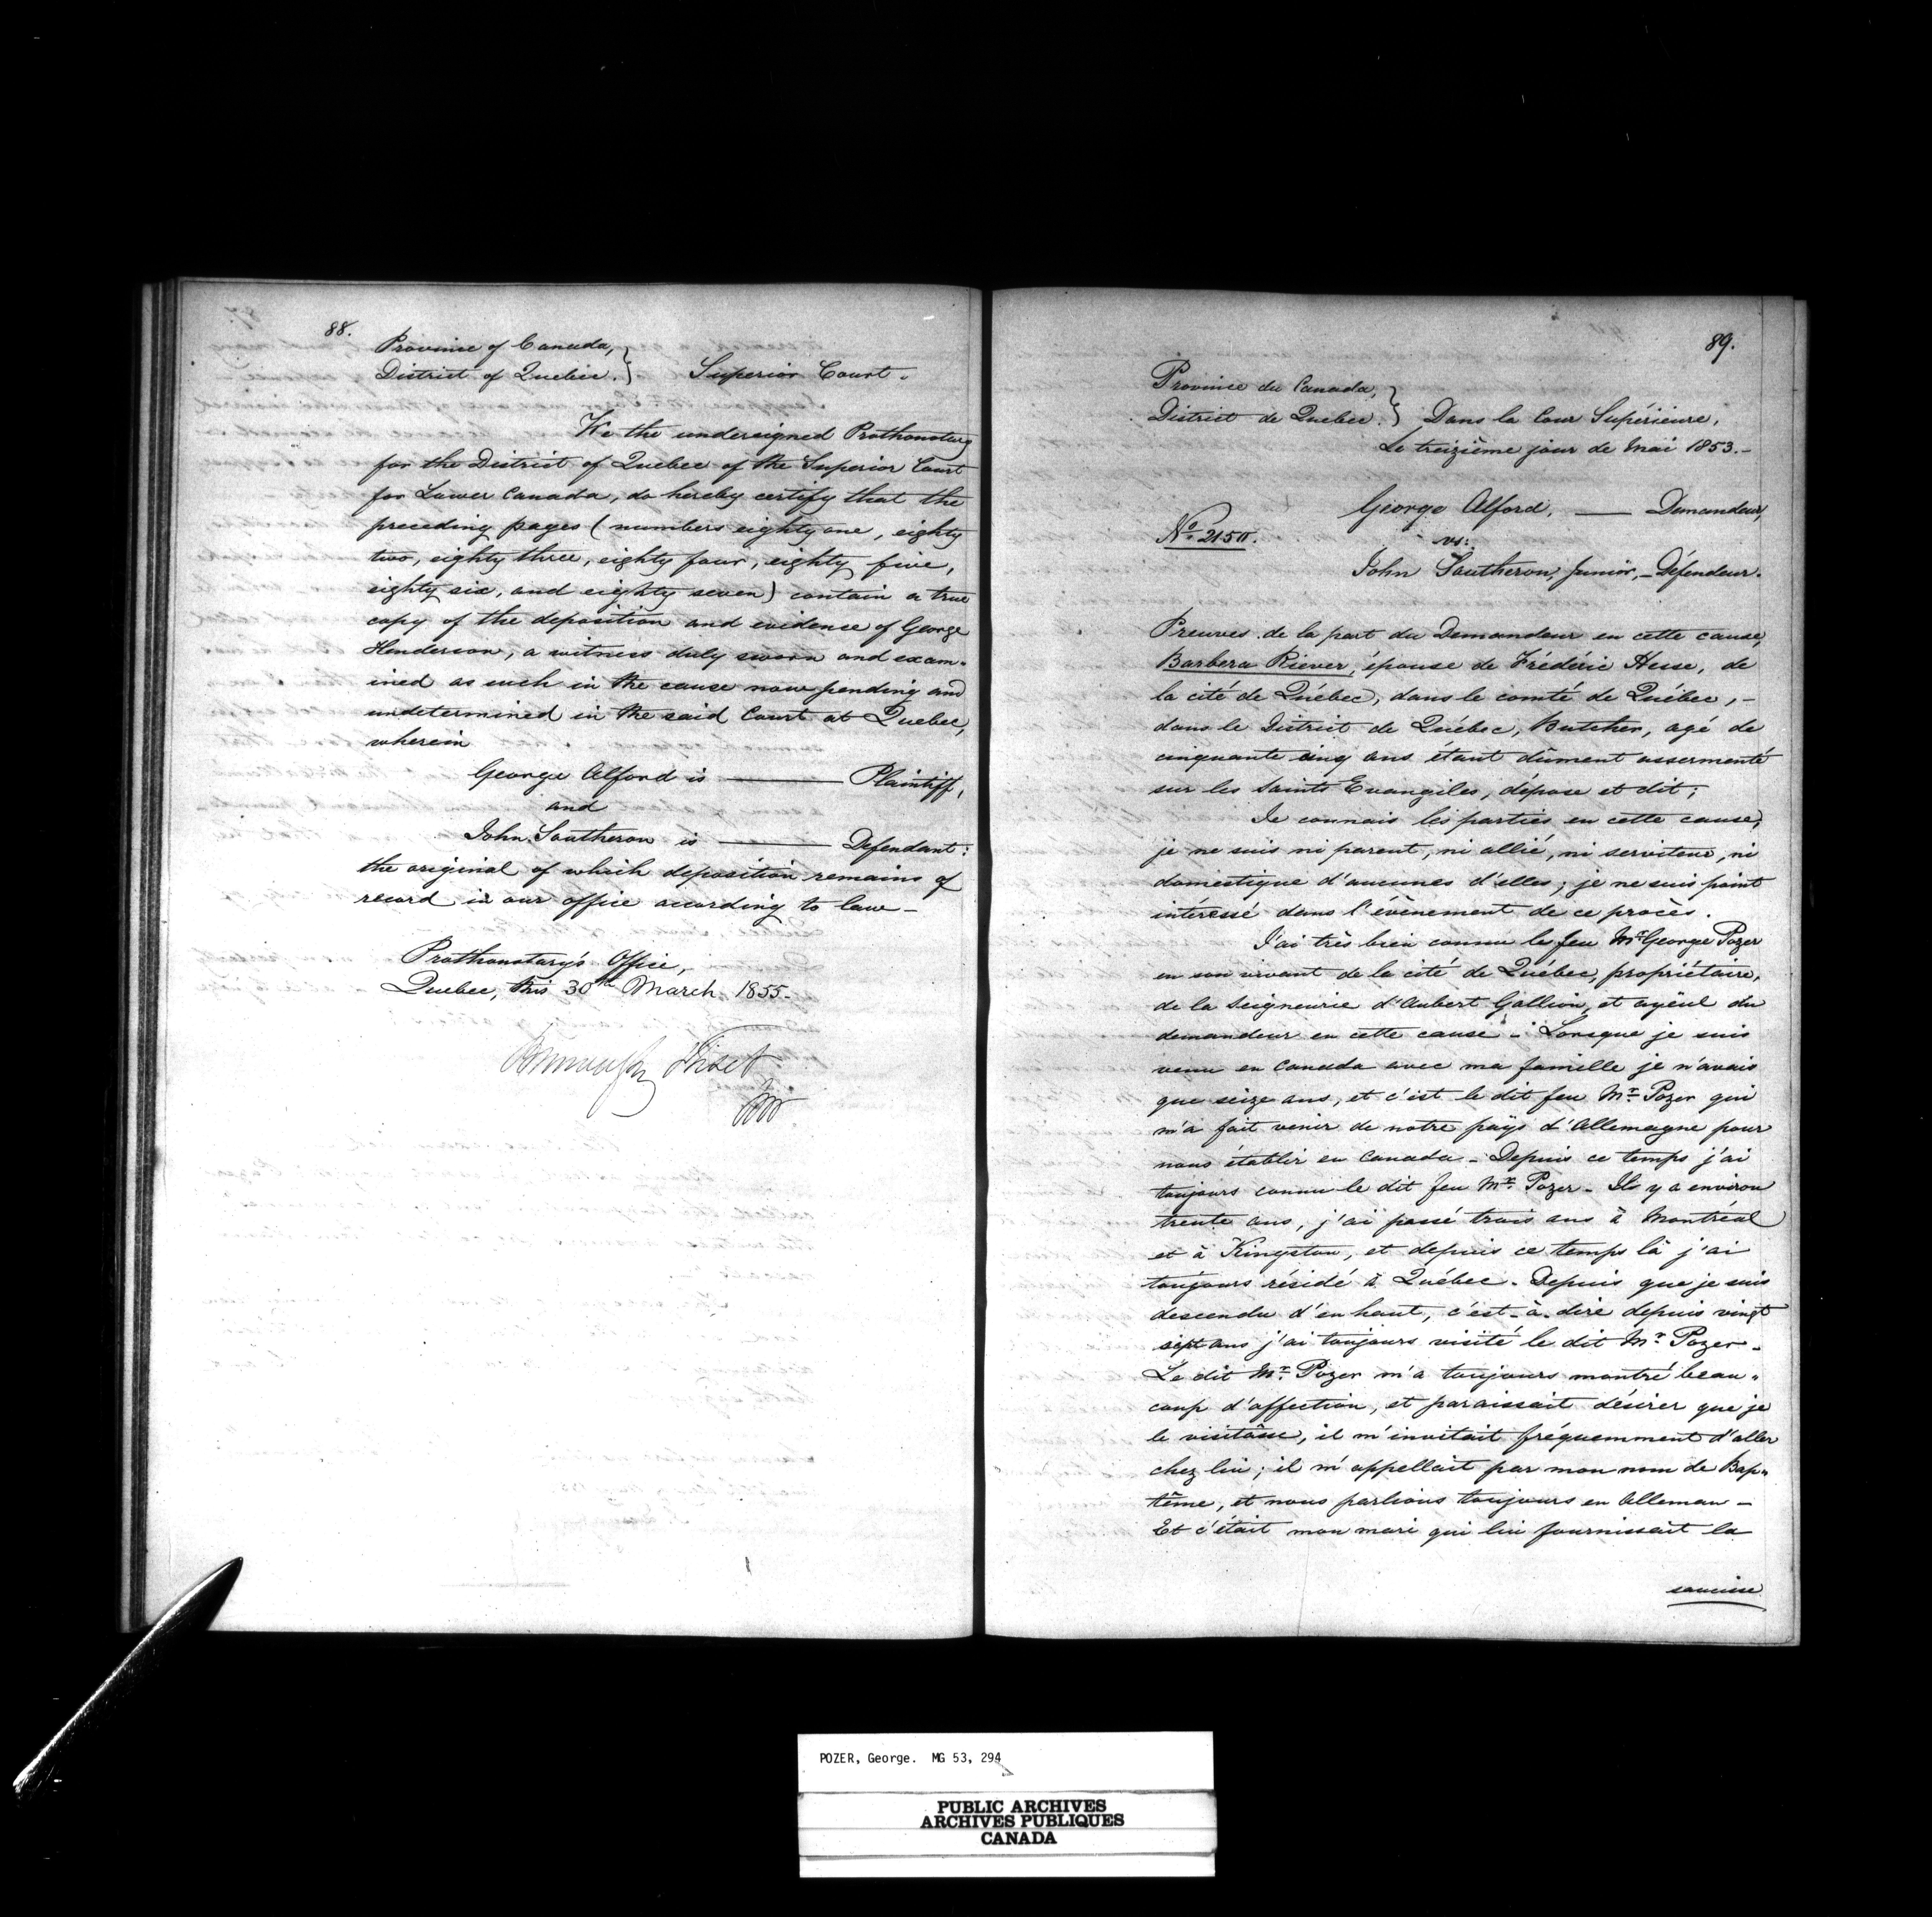 88.
Province of Canada,
District of Quebec. } Superior Court.
We the undersigned Prothonotary
for the District of Quebec of the Superior Court
for Lower Canada, do hereby certify that the
preceding pages (numbers eighty one, eighty
two, eighty three, eighty four, eighty five,
eighty six, and eighty seven) contain a true
copy of the deposition and evidence of George
Henderson, a witness duly sworn and exam-
ined as such in the cause now pending and
undetermined in the said Court at Quebec,
wherein
George Alford is ——— Plaintiff,
and
John Southeron is ——— Defendant:
the original of which deposition remains of
record in our office according to law –
Prothonotary's Office,
Quebec, this 30th March 1855.
Fiset
89.
Province du Canada,
District de Quebec. } Dans la Cour Supérieure,
Le treizième jour de Mai 1853. –
George Alford, —— Demandeur,
No.
vs:
John Southeron, Junior, – Défendeur.
Preuves de la part du Demandeur en cette cause,
Barbera Riever, épouse de Frédéric Hesse, de
la cité de Québec, dans le comté de Québec, –
dans le District de Québec, Butcher, agé de
cinquante cinq ans étant dûment assermenté
sur les Saints Evangiles, dépose et dit;
Je connais les parties en cette cause;
je ne suis ni parent, ni allié, ni serviteur, ni
domestique d'aucunes d'elles; je ne suis point
intéressé dans l'évènement de ce procès.
J'ai très bien connu le feu Mr. George Pozer
en son vivant de la cité de Québec, propriétaire,
de la Seigneurie d'Aubert Gallion, et ayëul du
demandeur en cette cause – Lorsque je suis
venu en Canada avec ma famille je n'avais
que seize ans, et c'est le dit feu Mr. Pozer qui
m'a fait venir de notre päys d'Allemagne pour
nous établir en Canada – Depuis ce temps j'ai
toujours connu le dit feu Mr. Pozer – Ils y a environ
trente ans, j'ai passé trois ans à Montréal
et à Kingston, et depuis ce temps là j'ai
toujours résidé à Québec. Depuis que je suis
descendu d'en haut, c'est-à-dire depuis vingt
sept ans j'ai toujours visité le dit Mr. Pozer –
Le dit Mr. Pozer m'a toujours montré beau-
coup d'affection, et paraissait désirer que je
le visitâsse, il m'invitait fréquemment d'aller
chez lui; il m'appellait par mon nom de Bap-
tême, et nous parlions toujours en Alleman –
Et c'était mon mari qui lui fournissait la
saucisse
POZER, George. MG 53, 294
PUBLIC ARCHIVES
ARCHIVES PUBLIQUES
CANADA